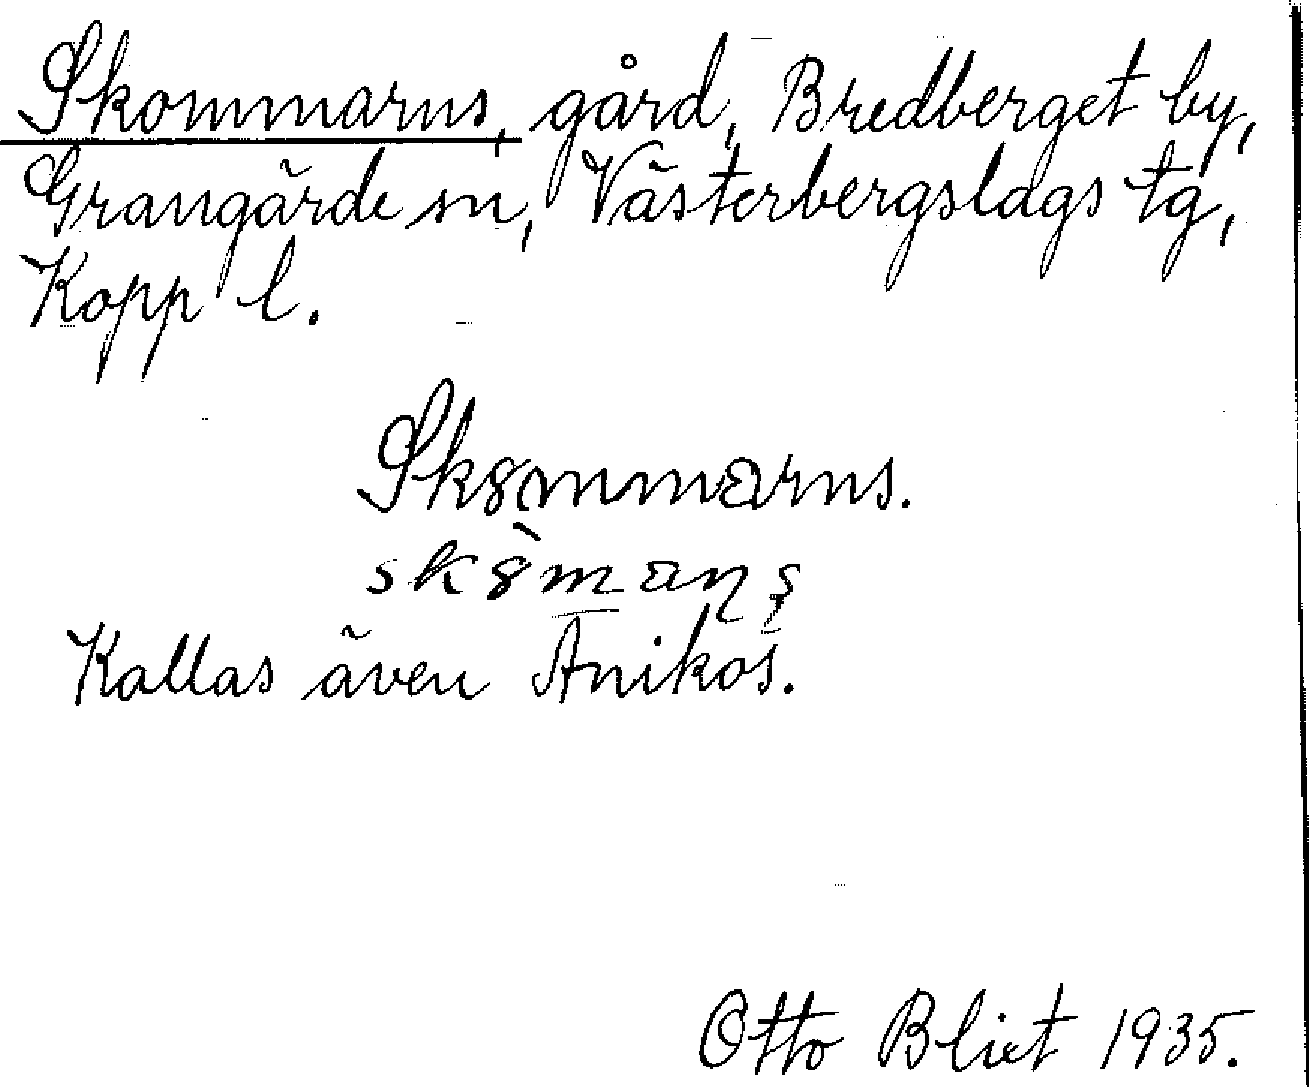 Skommarns, gård, Bredberget by,
Grangärde sn, Västerbergslags tg,
Kopp l.
Sk8mmarns.
Kallas även Anikos.
Otto Blixt 1935.